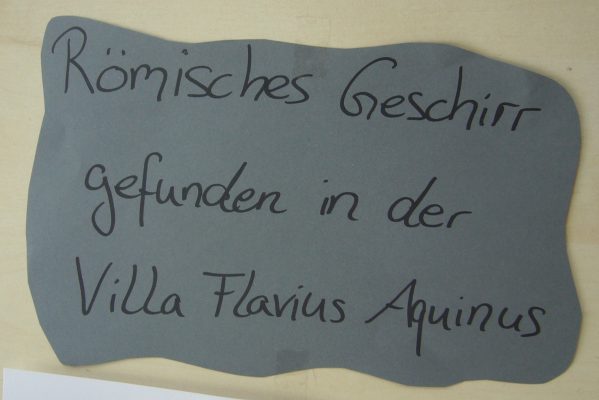 Römisches Geschirr
gefunden in der
Villa Flavius Aquinus